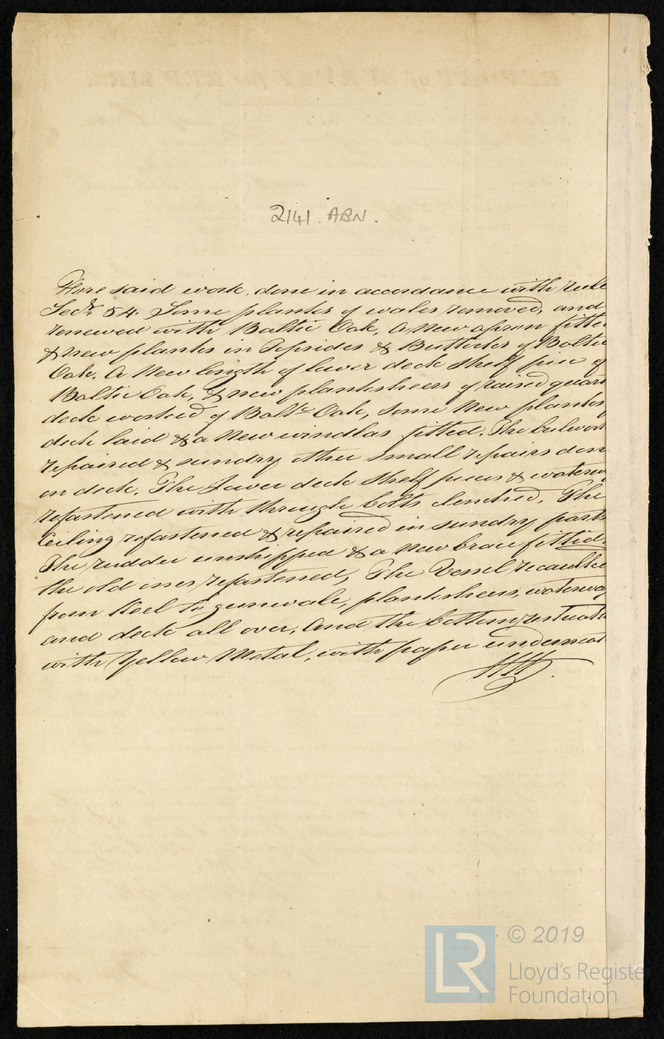 2141. ABN.
Fore said work done in accordance with rule
Secn. 54. Some planks of wales removed, and
renewed with Baltic Oak, A New apron fitte
& new planks in Topsides & Buttocks of Baltic
Oak. A New length of lower deck shelf piece of
Baltic Oak, & new planksheers of raised quart
deck worked of Baltc Oak, some New planks
deck laid & a New windlas fitted. The bulwork
repaired & sundry other small repairs don
on deck. The lower deck shelf pieces & waterw
refastened with through bolts clenched. The
Ceiling refastened & repaired in sundry parts
The rudder unshipped & a New brace fitted,
the old ones refastened, The Vessel recaulke
from Keel to gunwale, planksheers, waterway
and deck all over, And the bottom,
with Yellow Metal, with paper underneat
© 2019
LR
Lloyd's Register
Foundation